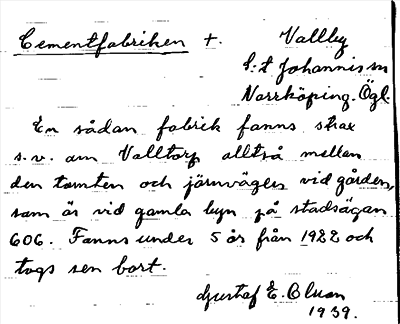 Cementfabriken +. Vallby
S:t Johannis sn
Norrköping. Ögl.
En sådan fabrik fanns strax
s.v. om Valltorp alltså mellan
den tomten och järnvägen vid gården,
som är vid gamla byn på stadsägan
606. Fanns under 5 år från 1922 och
togs sen bort.
Gustaf E. Olson
1939.